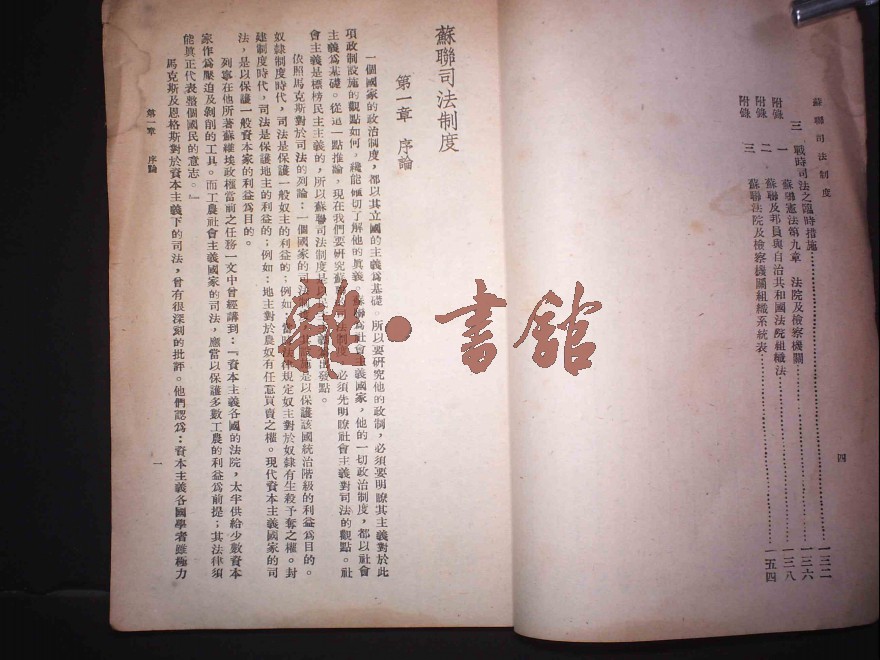 蘇聯司法制度
三 戰時司法之臨時措施……一三二
附錄 一 蘇聯憲法第九章 法院及檢察機關……一三六
附錄 二 蘇聯及邦員與自治共和國法院組織法……一三八
附錄 三 蘇聯法院及檢察機關組織系統表……一五四
四
蘇聯司法制度
第一章 序論
一個國家的政治制度，都以其立國的主義爲基礎。所以要研究他的政制，必須要明瞭其主義對於此
項政制設施的觀點如何，纔能確切了解他的眞義。蘇聯爲社會主義國家，他的一切政治制度，都以社會
主義爲基礎。從這一點推論，現在我們要研究蘇聯司法制度，必須先明瞭社會主義對司法的觀點。社
會主義是標榜民主主義的，所以蘇聯司法制度是以 發點。
依照馬克斯對於司法的列論：一個國家的司法制 施是以保護該國統治階級的利益爲目的。
奴隸制度時代，司法是保護一般奴主的利益的；例如： 法律規定奴主對於奴隸有生殺予奪之權。封
建制度時代，司法是保護地主的利益的；例如：地主對於農奴有任意買賣之權。現代資本主義國家的司
法，是以保護一般資本家的利益爲目的。
列寧在他所著蘇維埃政權當前之任務一文中曾經講到：『資本主義各國的法院，太半供給少數資本
家作爲壓迫及剝削的工具。而工農社會主義國家的司法，應當以保護多數工農的利益爲前提；其法律須
能眞正代表整個國民的意志。』
馬克斯及恩格斯對於資本主義下的司法，曾有很深刻的批評。他們認爲：資本主義各國學者雖極力
第一章 序論
一
雜·書館